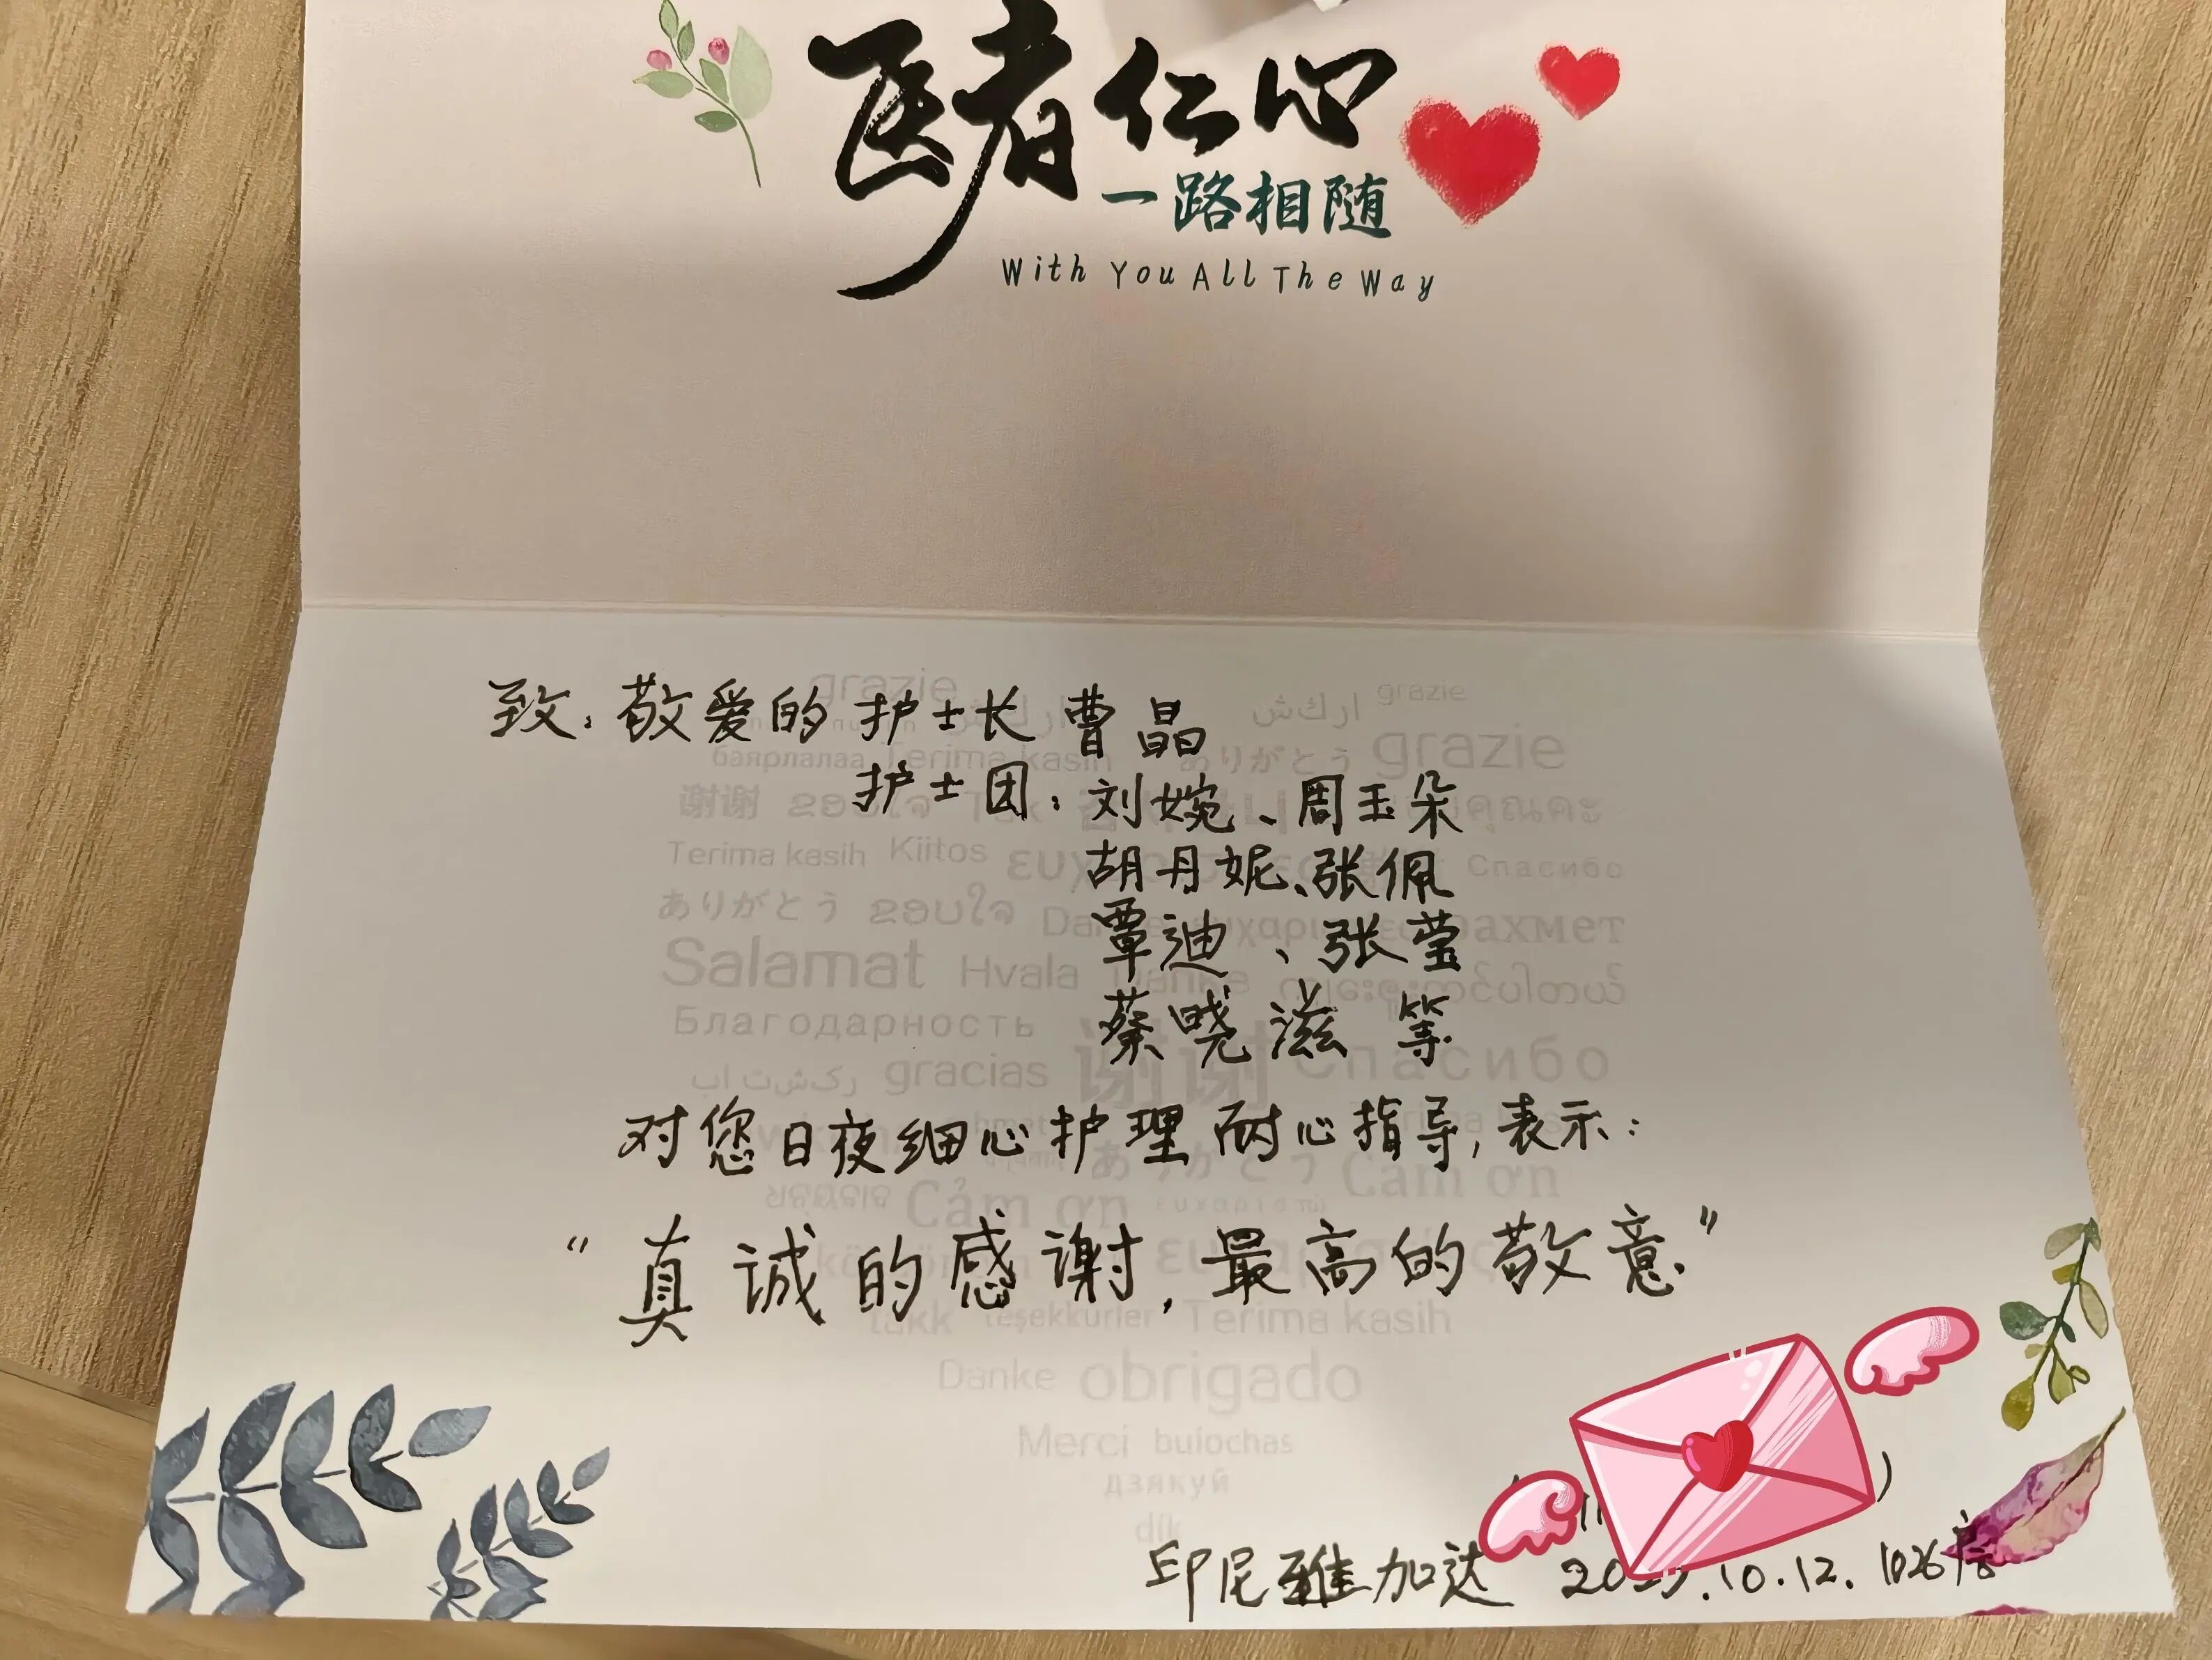 医者仁心
一路相随
With You All The Way
致：敬爱的护士长曹晶
护士团：刘婉、周玉朵
胡丹妮、张佩
覃迪、张莹
蔡晓滋 等
对您日夜细心护理 耐心指导，表示：
“真诚的感谢，最高的敬意”
印尼雅加达 .10.12. 1026
grazie
grazie
баярлалаа Terima kasih ありがとう grazie
谢谢 ຂອບໃຈ
Terima kasih Kiitos Спасибо
ありがとう ຂອບໃຈ
Salamat Hvala Danke
Благодарность
gracias 谢谢 Спасибо
ありがとう Cảm ơn
Cảm ơn ευχαριστώ
takk teşekkürler Terima kasih
Danke obrigado
Merci buíochas
дзякуй